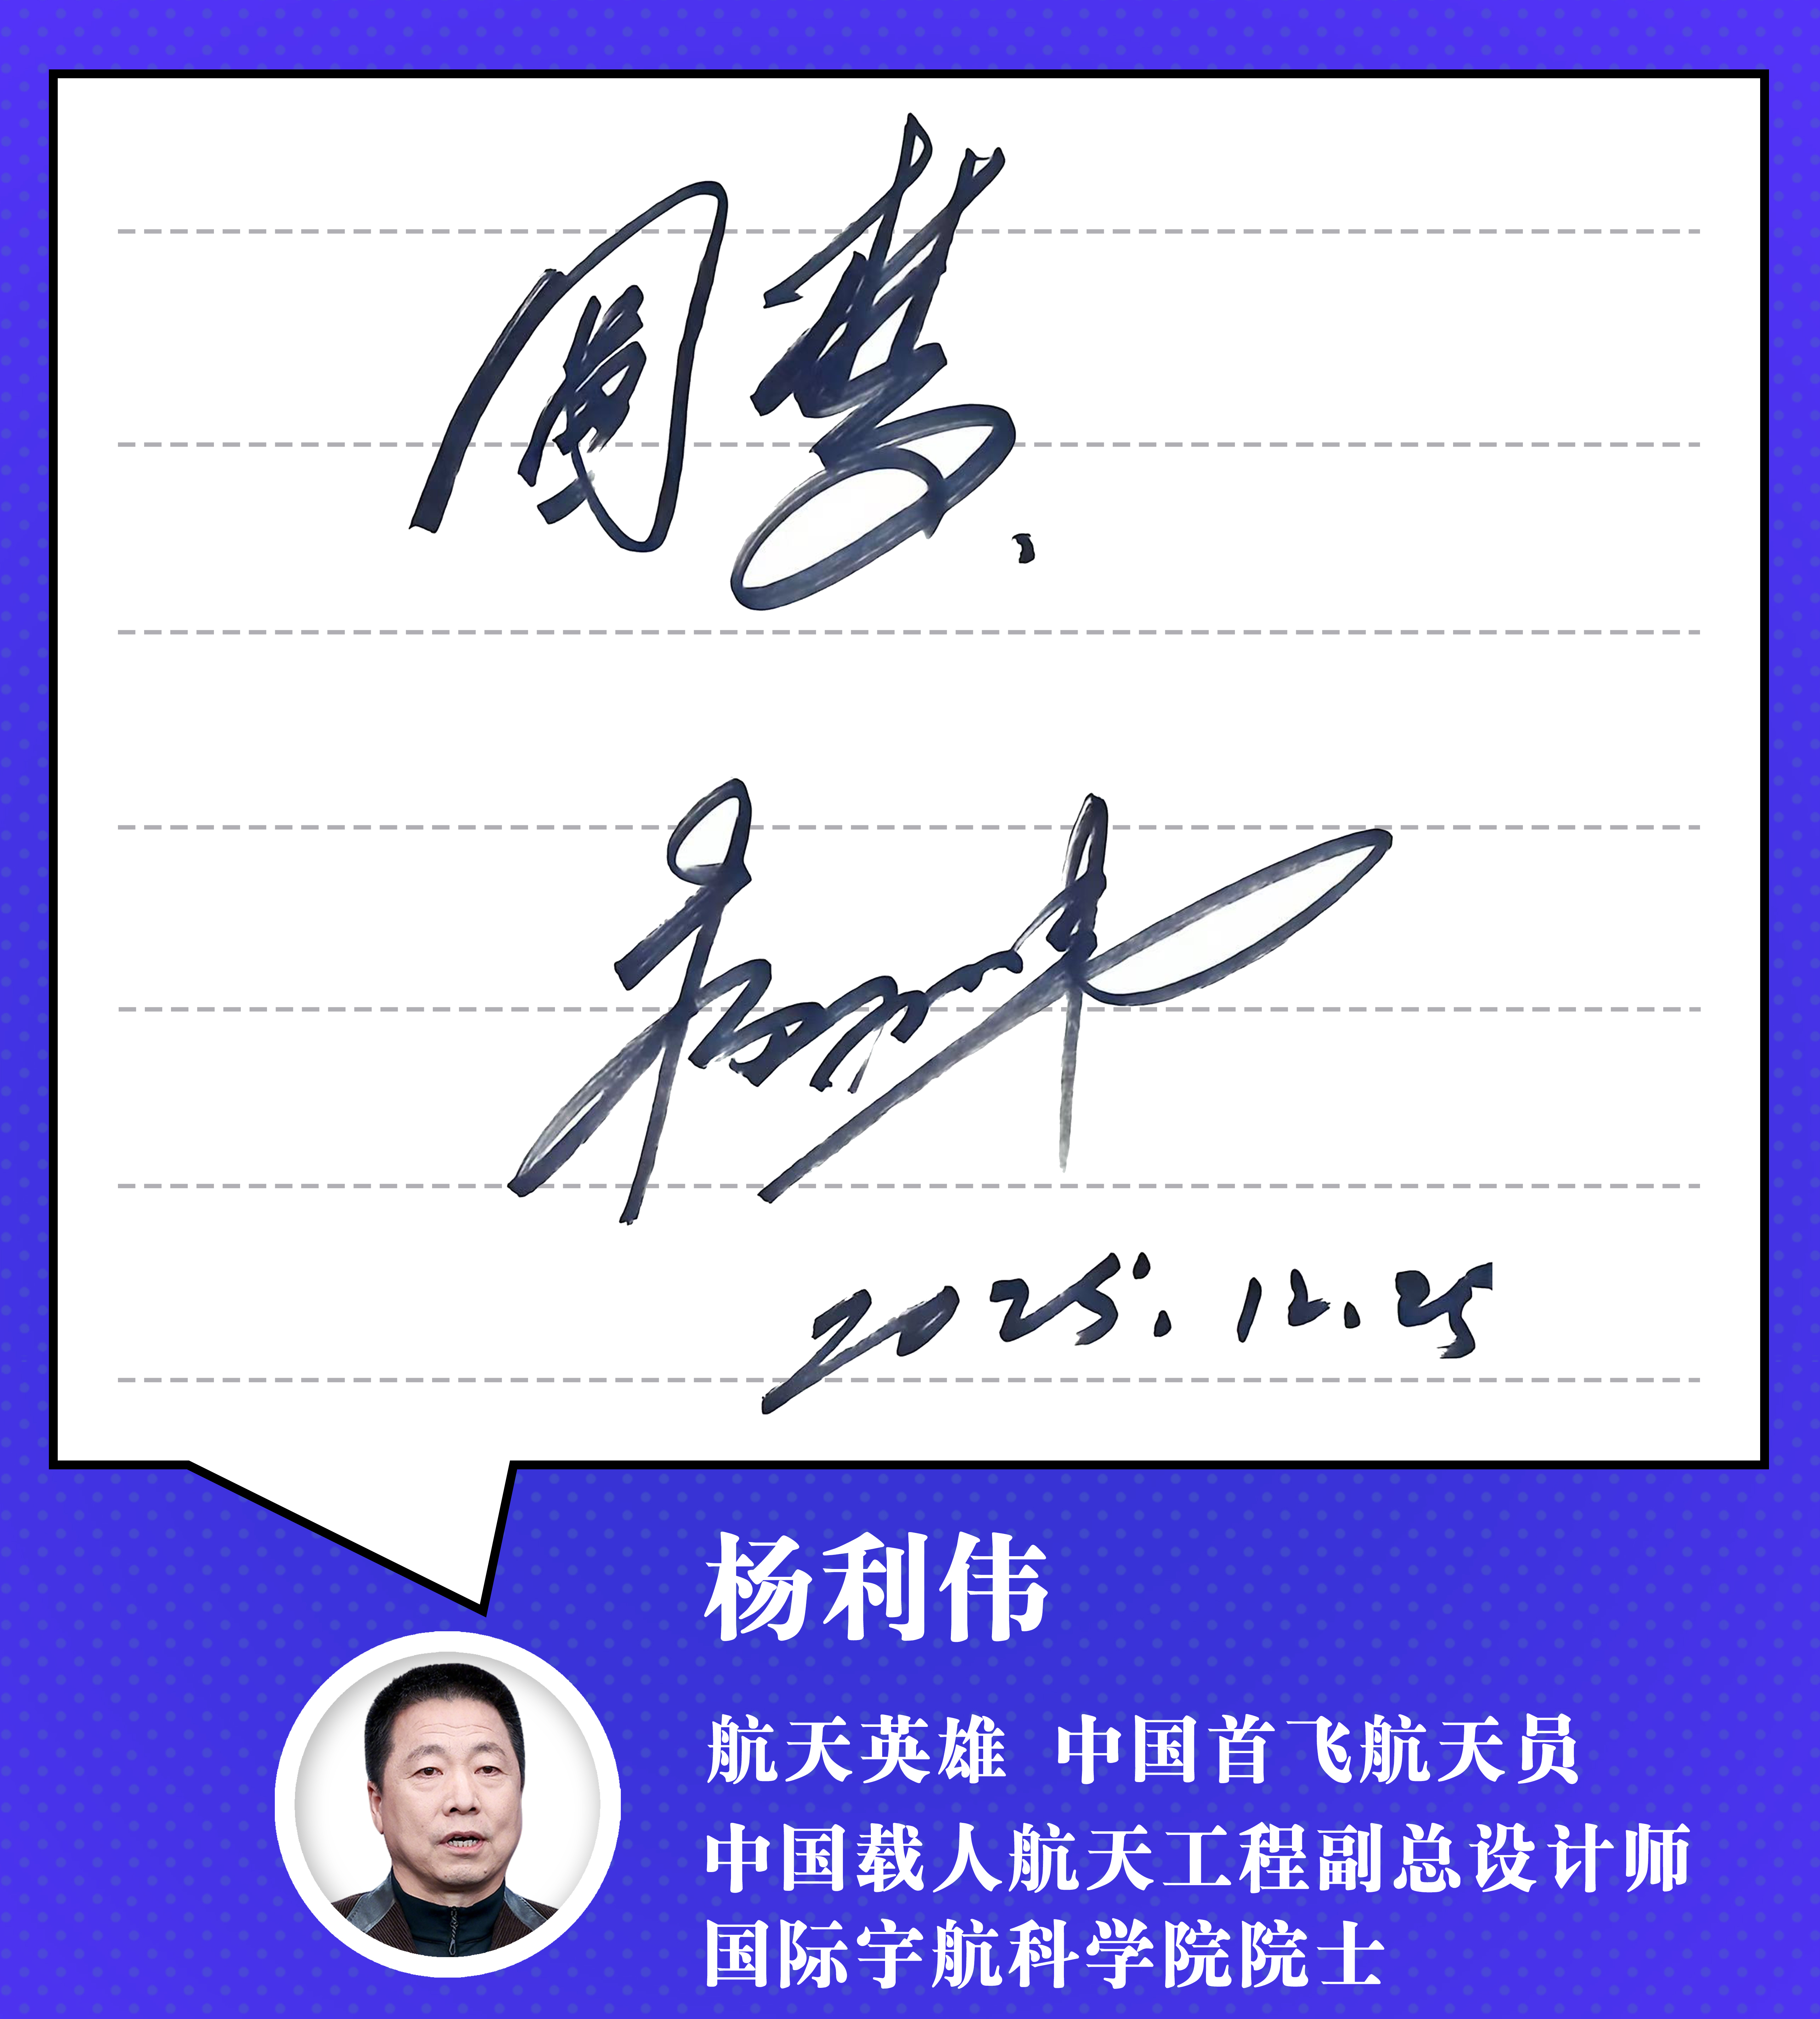 圆梦.
杨利伟
2025.12.25
杨利伟
航天英雄 中国首飞航天员
中国载人航天工程副总设计师
国际宇航科学院院士